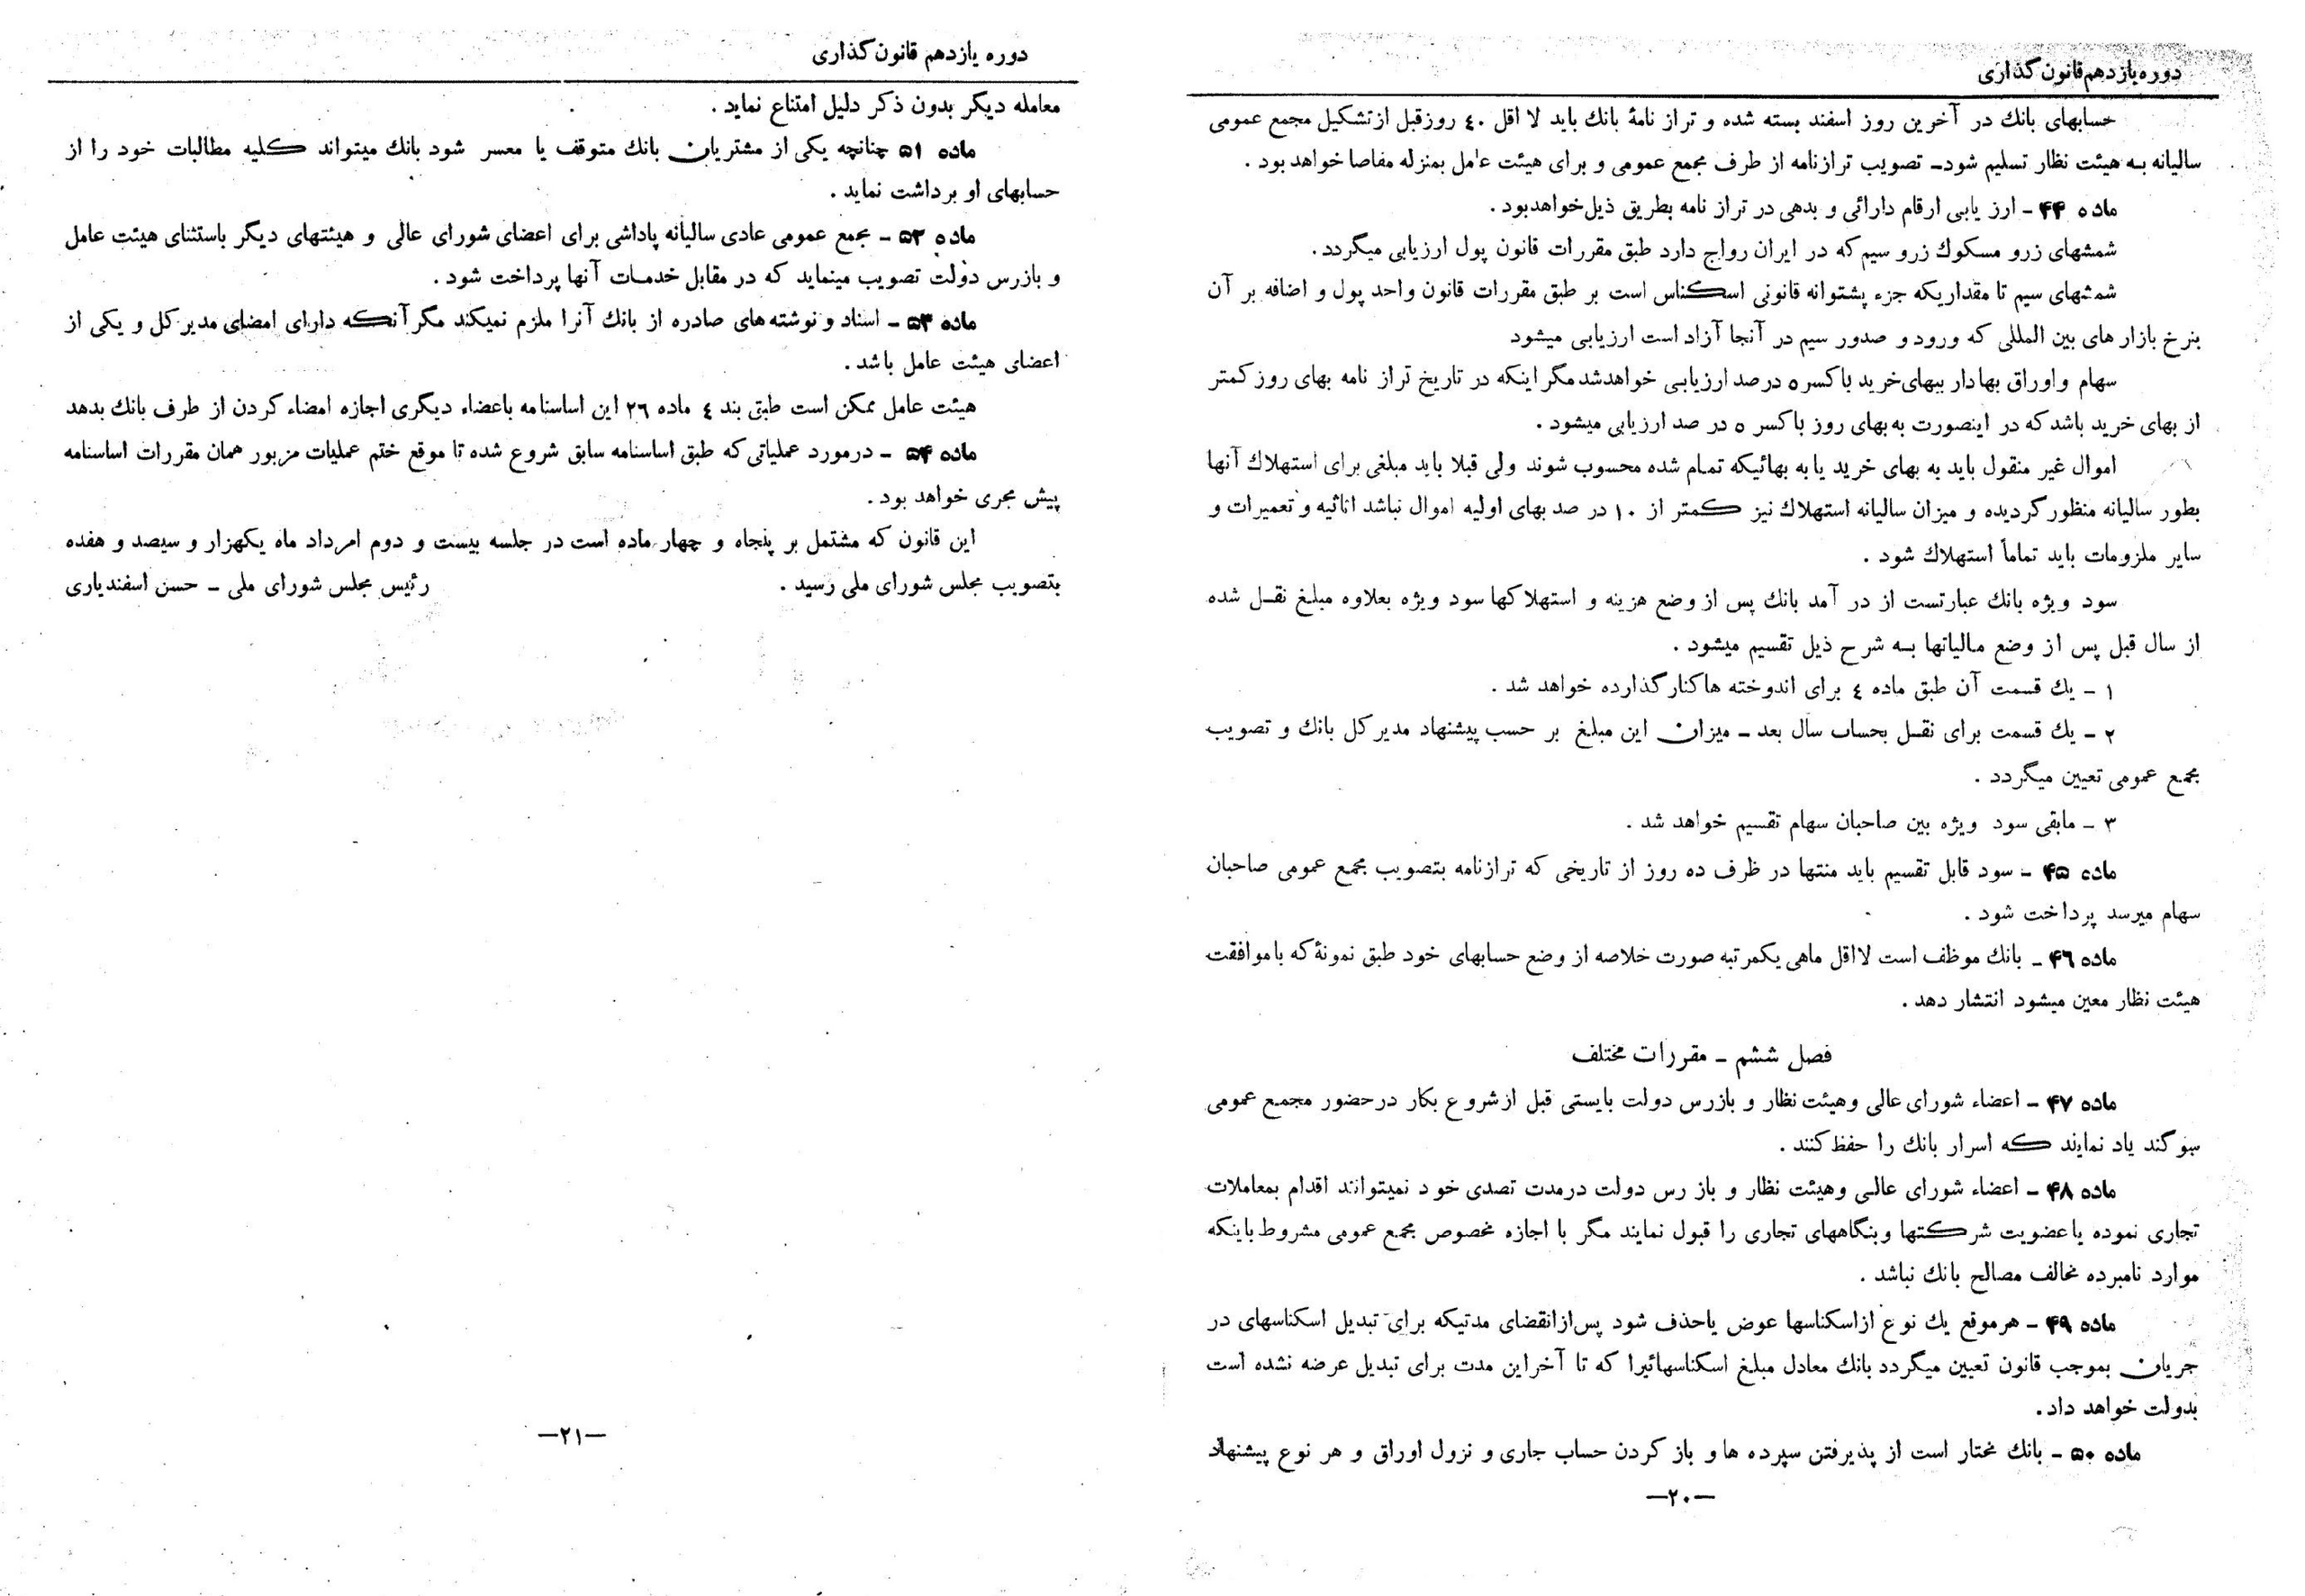 دوره یازدهم قانون‌گذاری
حسابهای بانك در آخرین روز اسفند بسته شده و تراز نامهٔ بانك باید لا اقل ٤٠ روز قبل از تشکیل مجمع عمومی
سالیانه به هیئت نظار تسلیم شود ــ تصویب ترازنامه از طرف مجمع عمومی و برای هیئت عامل بمنزله مفاصا خواهد بود .
ماده ۴۴ ــ ارز یابی ارقام دارائی و بدهی در تراز نامه بطریق ذیل خواهد بود .
شمشهای زرو مسکوك زرو سیم که در ایران رواج دارد طبق مقررات قانون پول ارزیابی میگردد .
شمشهای سیم تا مقداریکه جزء پشتوانه قانونی اسکناس است بر طبق مقررات قانون واحد پول و اضافه بر آن
بنرخ بازار های بین المللی که ورود و صدور سیم در آنجا آزاد است ارزیابی میشود
سهام و اوراق بهادار ببهای خرید با کسر ٥ در صد ارزیابی خواهد شد مگر اینکه در تاریخ تراز نامه بهای روز کمتر
از بهای خرید باشد که در اینصورت به بهای روز با کسر ٥ در صد ارزیابی میشود .
اموال غیر منقول باید به بهای خرید یا به بهائیکه تمام شده محسوب شوند ولی قبلا باید مبلغی برای استهلاك آنها
بطور سالیانه منظور گردیده و میزان سالیانه استهلاك نیز کمتر از ١٠ در صد بهای اولیه اموال نباشد اثاثیه و تعمیرات و
سایر ملزومات باید تماماً استهلاك شود .
سود ویژه بانك عبارتست از در آمد بانك پس از وضع هزینه و استهلاکها سود ویژه بعلاوه مبلغ نقل شده
از سال قبل پس از وضع مالیاتها به شرح ذیل تقسیم میشود .
١ ــ یك قسمت آن طبق ماده ٤ برای اندوخته ها کنار گذارده خواهد شد .
٢ ــ یك قسمت برای نقل بحساب سال بعد ــ میزان این مبلغ بر حسب پیشنهاد مدیر کل بانك و تصویب
مجمع عمومی تعیین میگردد .
٣ ــ مابقی سود ویژه بین صاحبان سهام تقسیم خواهد شد .
ماده ۴۵ ــ سود قابل تقسیم باید منتها در ظرف ده روز از تاریخی که ترازنامه بتصویب مجمع عمومی صاحبان
سهام میرسد پرداخت شود .
ماده ۴۶ ــ بانك موظف است لااقل ماهی یکمرتبه صورت خلاصه از وضع حسابهای خود طبق نمونهٔ که با موافقت
هیئت نظار معین میشود انتشار دهد .
فصل ششم ــ مقررات مختلف
ماده ۴۷ ــ اعضاء شورای عالی و هیئت نظار و بازرس دولت بایستی قبل از شروع بکار در حضور مجمع عمومی
سوگند یاد نمایند که اسرار بانك را حفظ کنند .
ماده ۴۸ ــ اعضاء شورای عالی و هیئت نظار و باز رس دولت در مدت تصدی خود نمیتوانند اقدام بمعاملات
تجاری نموده یا عضویت شرکتها و بنگاههای تجاری را قبول نمایند مگر با اجازه مخصوص مجمع عمومی مشروط باینکه
موارد نامبرده مخالف مصالح بانك نباشد .
ماده ۴۹ ــ هر موقع یك نوع از اسکناسها عوض یا حذف شود پس از انقضای مدتیکه برای تبدیل اسکناسهای در
جریان بموجب قانون تعیین میگردد بانك معادل مبلغ اسکناسهائیرا که تا آخر این مدت برای تبدیل عرضه نشده است
بدولت خواهد داد .
ماده ۵۰ ــ بانك مختار است از پذیرفتن سپرده ها و باز کردن حساب جاری و نزول اوراق و هر نوع پیشنهاد
—٢٠—
دوره یازدهم قانون‌گذاری
معامله دیگر بدون ذکر دلیل امتناع نماید .
ماده ۵۱ چنانچه یکی از مشتریان بانك متوقف یا معسر شود بانك میتواند کلیه مطالبات خود را از
حسابهای او برداشت نماید .
ماده ۵۲ ــ مجمع عمومی عادی سالیانه پاداشی برای اعضای شورای عالی و هیئتهای دیگر باستثنای هیئت عامل
و بازرس دولت تصویب مینماید که در مقابل خدمات آنها پرداخت شود .
ماده ۵۳ ــ اسناد و نوشته های صادره از بانك آنرا ملزم نمیکند مگر آنکه دارای امضای مدیر کل و یکی از
اعضای هیئت عامل باشد .
هیئت عامل ممکن است طبق بند ٤ ماده ٢٦ این اساسنامه باعضاء دیگری اجازه امضاء کردن از طرف بانك بدهد
ماده ۵۴ ــ در مورد عملیاتی که طبق اساسنامه سابق شروع شده تا موقع ختم عملیات مزبور همان مقررات اساسنامه
پیش مجری خواهد بود .
این قانون که مشتمل بر پنجاه و چهار ماده است در جلسه بیست و دوم امرداد ماه یکهزار و سیصد و هفده
بتصویب مجلس شورای ملی رسید . رئیس مجلس شورای ملی ــ حسن اسفندیاری
—٢١—